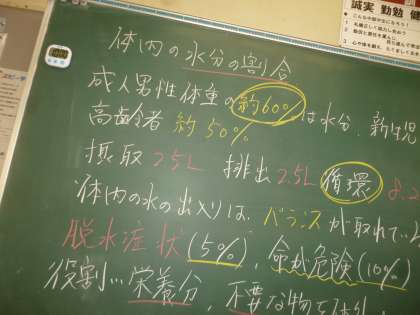 体内の水分の割合
成人男性体重の約60%は水分、新生児
高齢者 約50%
摂取2.5L 排出2.5L 循環 8.2
体内の水の出入りは、バランスが取れてい
脱水症状(5%)、命が危険(10%)
役割…栄養分、不要な物を体外
誠実 勤勉